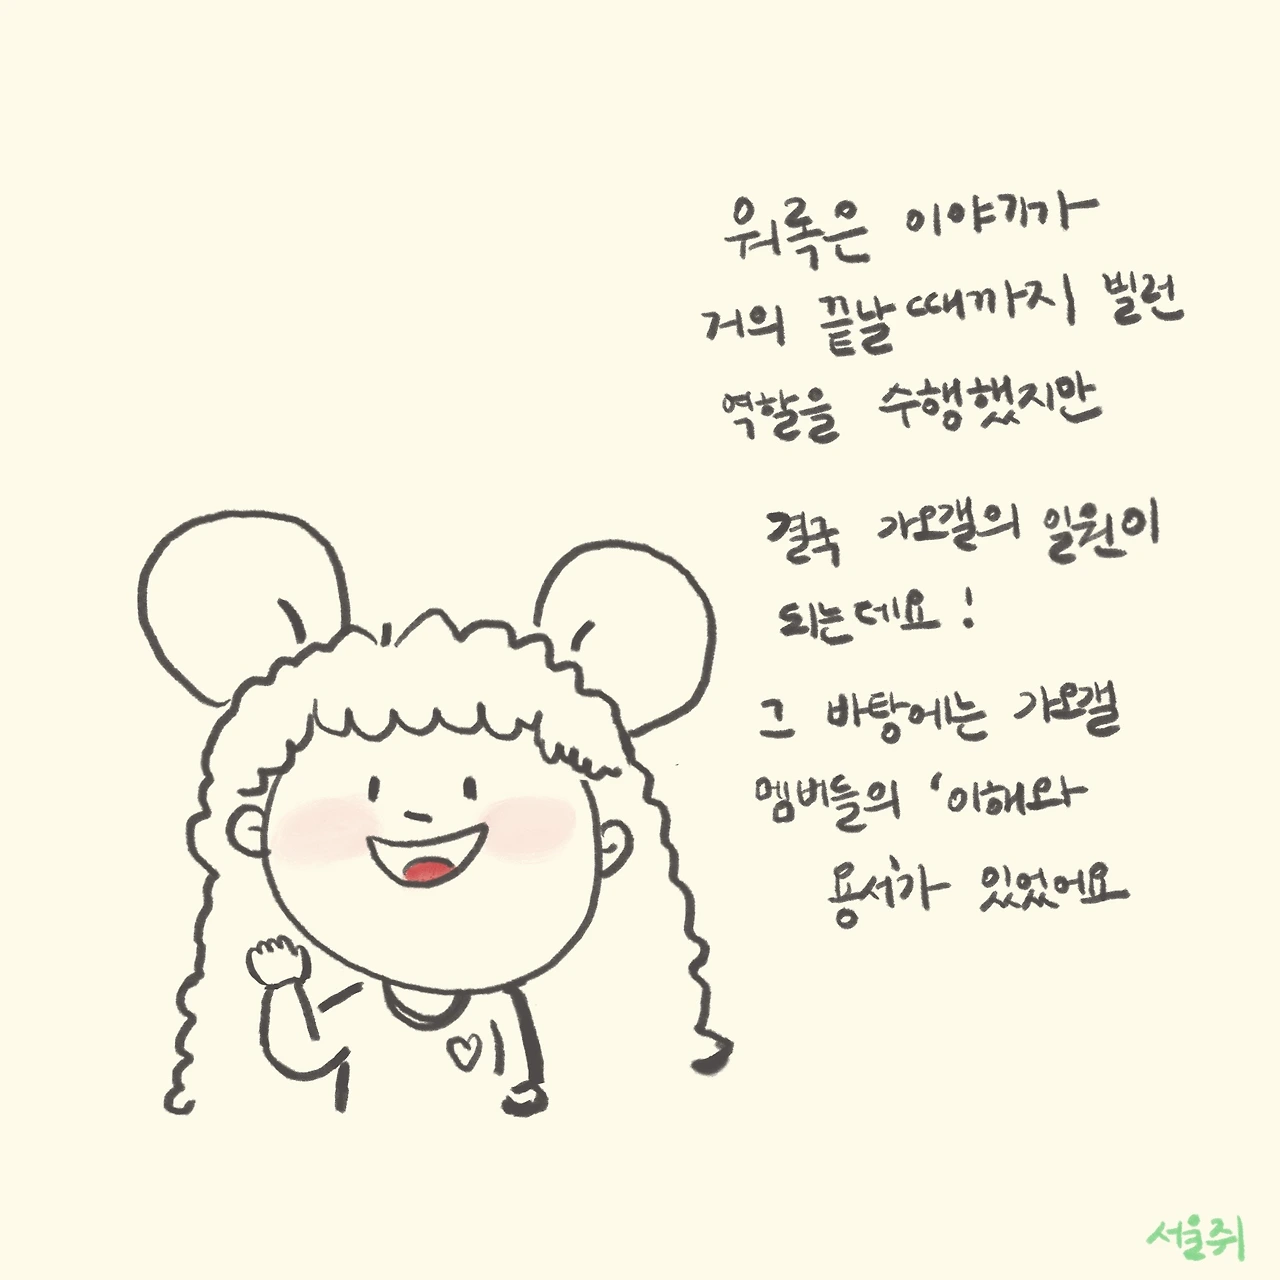 워록은 이야기가
거의 끝날때까지 빌런
역할을 수행했지만
결국 가오갤의 일원이
되는데요!
그 바탕에는 가오갤
멤버들의 '이해와
용서'가 있었어요
서울쥐